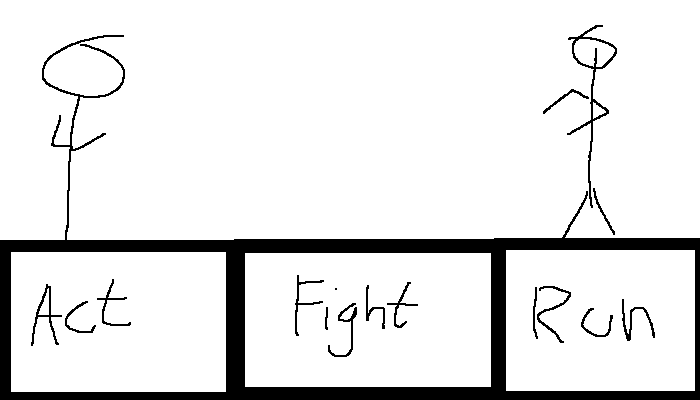 Act
Fight
Run